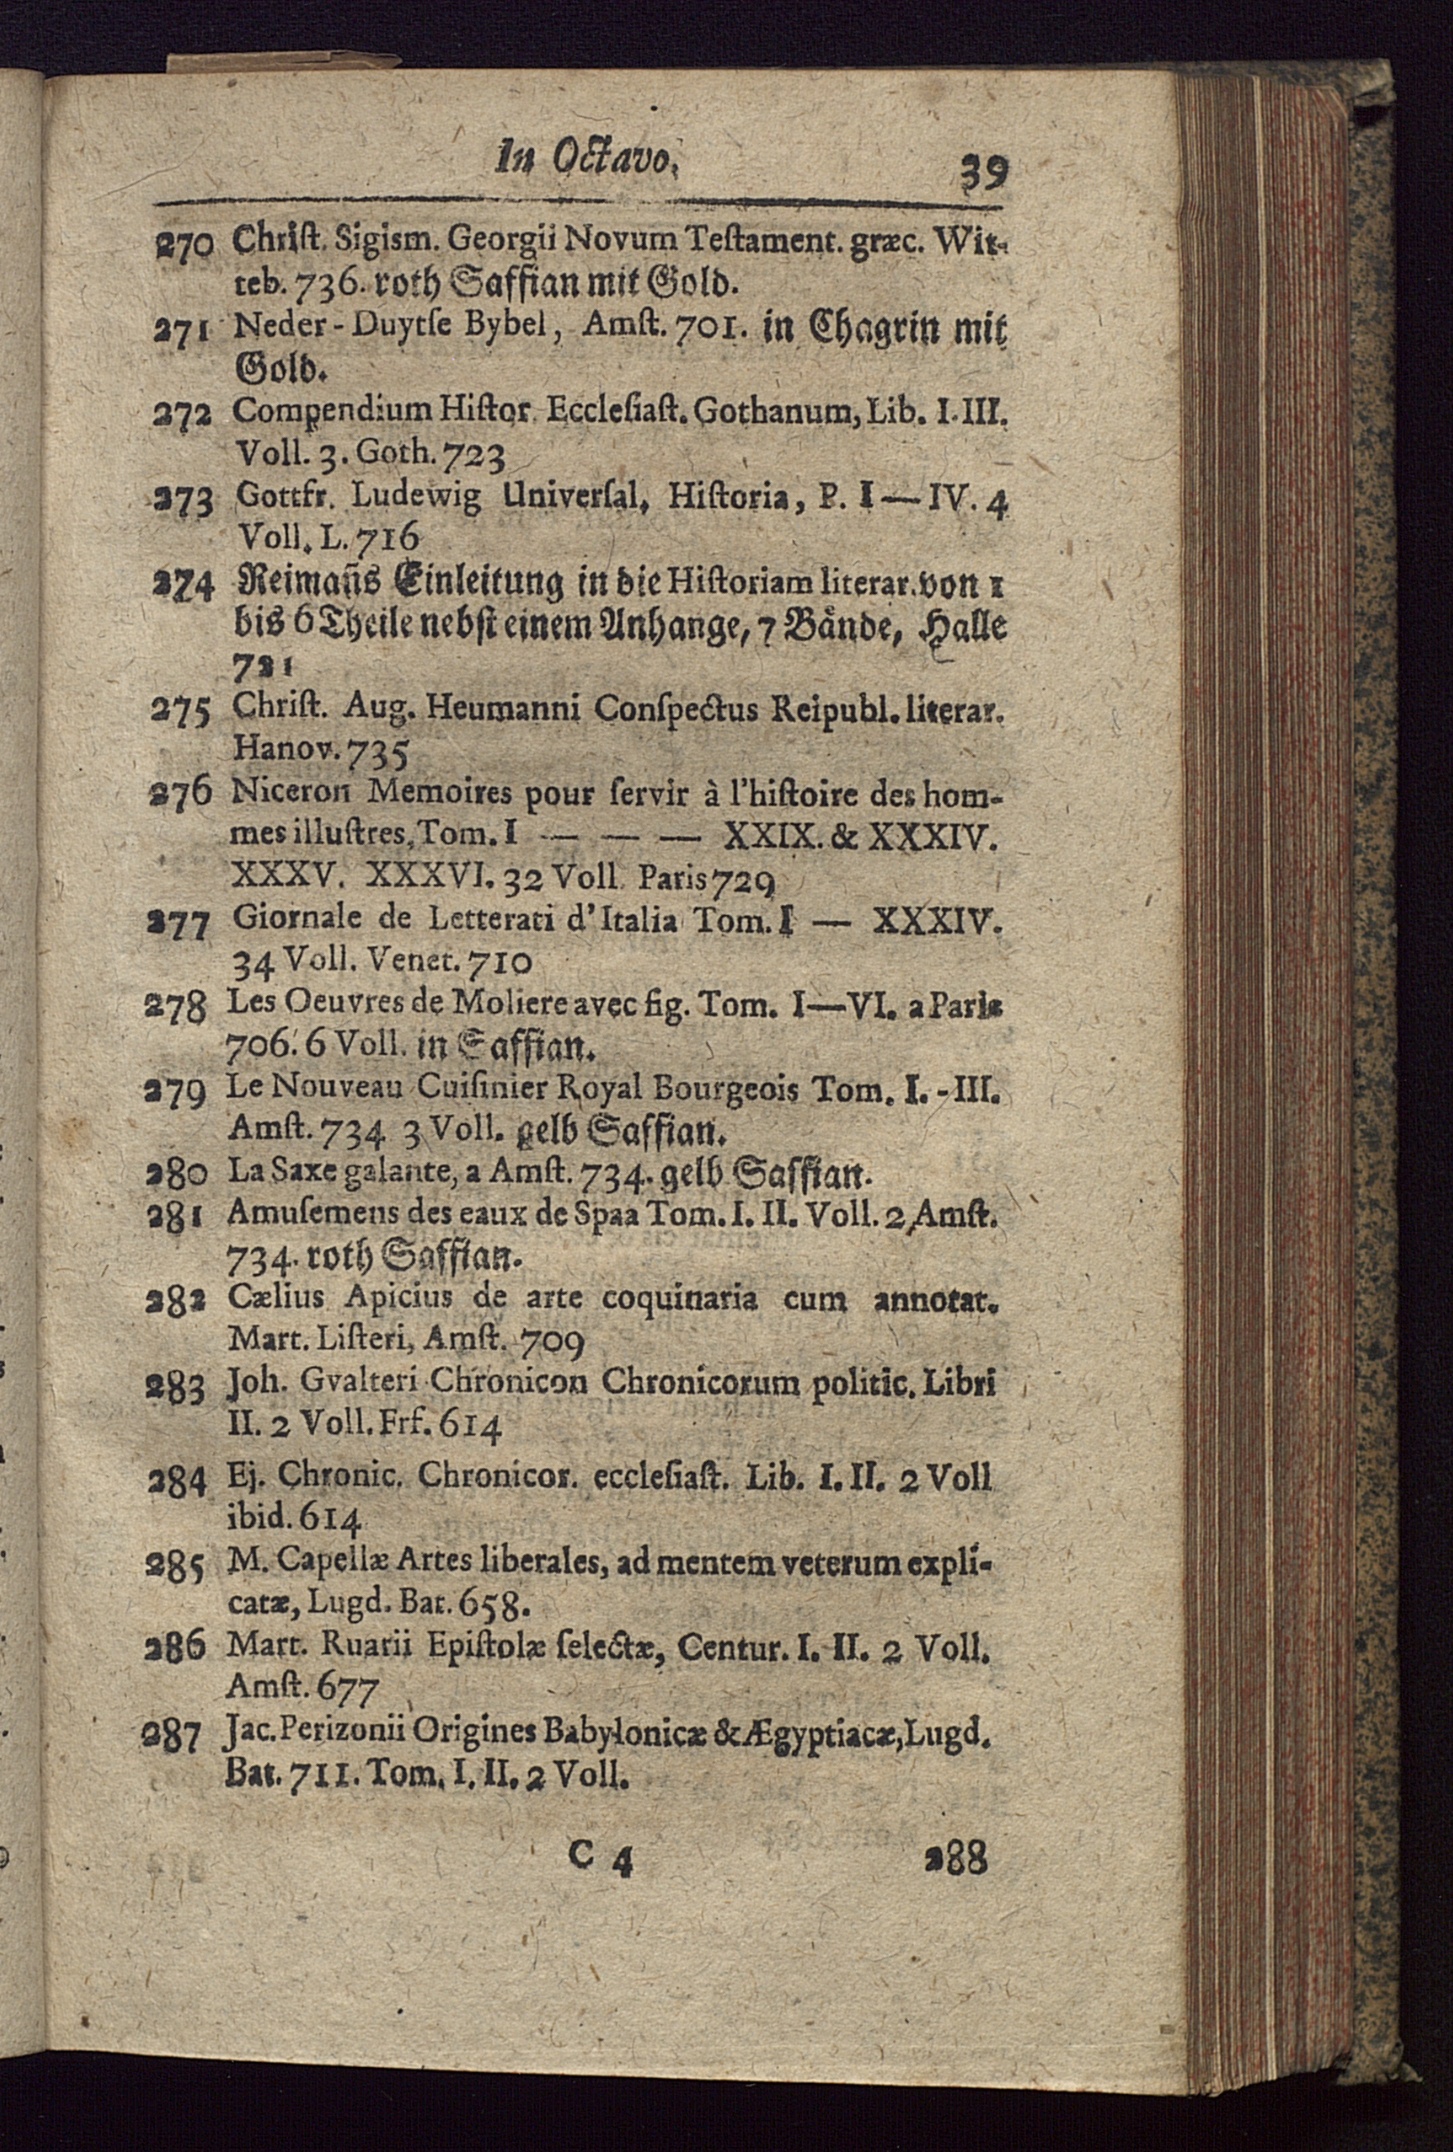 In Octavo.
39
270 Chriſt. Sigism. Georgii Novum Teſtament. græc. Wit-
teb. 736. roth Saffian mit Gold.
271 Neder-Duytſe Bybel, Amſt. 701. in Chagrin mit
Gold.
272 Compendium Hiſtor. Eccleſiaſt. Gothanum, Lib. I-III.
Voll. 3. Goth. 723
273 Gottfr. Ludewig Univerſal, Hiſtoria, P. I — IV. 4
Voll. L. 716
274 Reimañs Einleitung in die Hiſtoriam literar. von 1
bis 6 Theile nebſt einem Anhange, 7 Bände, Halle
721
275 Chriſt. Aug. Heumanni Conſpectus Reipubl. literar.
Hanov. 735
276 Niceron Memoires pour ſervir à l'hiſtoire des hom-
mes illuſtres, Tom. I — — — XXIX. & XXXIV.
XXXV. XXXVI. 32 Voll. Paris 729
277 Giornale de Letterati d'Italia Tom. I — XXXIV.
34 Voll. Venet. 710
278 Les Oeuvres de Moliere avec fig. Tom. I—VI. a Paris
706. 6 Voll. in Saffian.
279 Le Nouveau Cuiſinier Royal Bourgeois Tom. I. -III.
Amſt. 734 3 Voll. gelb Saffian.
280 La Saxe galante, a Amſt. 734. gelb Saffian.
281 Amuſemens des eaux de Spaa Tom. I. II. Voll. 2, Amſt.
734. roth Saffian.
282 Cælius Apicius de arte coquinaria cum annotat.
Mart. Liſteri, Amſt. 709
283 Joh. Gvalteri Chronicon Chronicorum politic. Libri
II. 2 Voll. Frf. 614
284 Ej. Chronic. Chronicor. eccleſiaſt. Lib. I. II. 2 Voll
ibid. 614
285 M. Capellæ Artes liberales, ad mentem veterum expli-
catæ, Lugd. Bat. 658.
286 Mart. Ruarii Epiſtolæ ſelectæ, Centur. I. II. 2 Voll.
Amſt. 677
287 Jac. Perizonii Origines Babylonicæ & Ægyptiacæ, Lugd.
Bat. 711. Tom. I. II. 2 Voll.
C 4
288